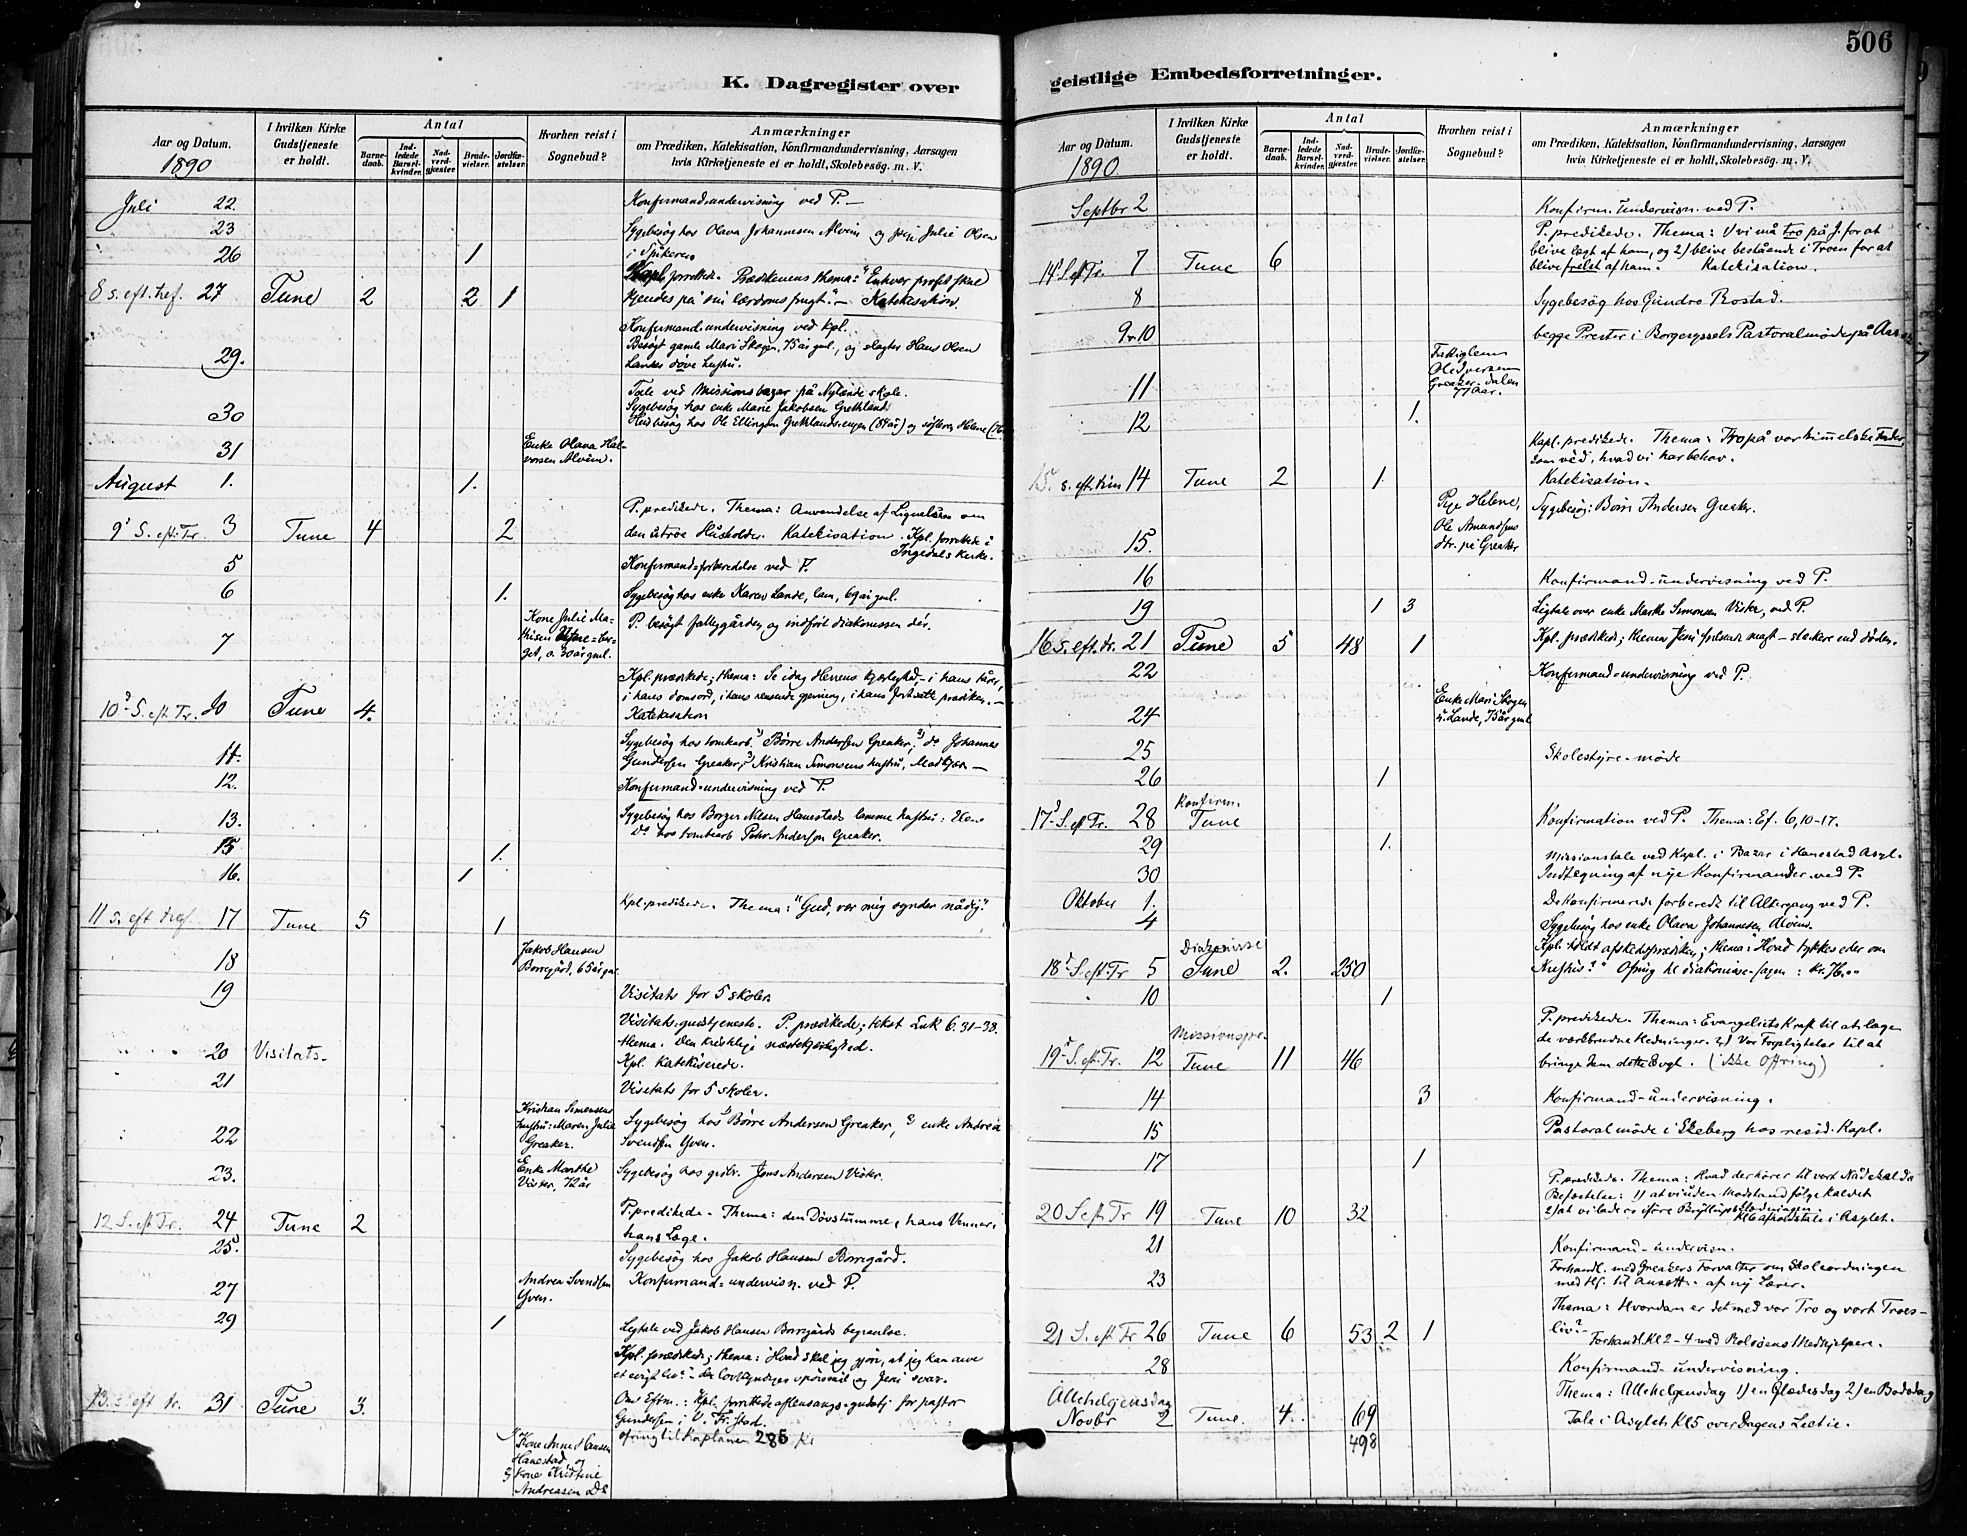 506
K. Dagregister over
geistlige Embedsforretninger.
Aar og Datum.
1890
I hvilken Kirke Gudstjeneste er holdt.
Antal
Barnedaab.
Indledede Barselkvinder.
Nadverdgjæster.
Brudevielser.
Jordfæstelser.
Hvorhen reist i Sognebud?
Anmærkninger
om Prædiken, Katekisation, Konfirmandundervisning, Aarsagen
hvis Kirketjeneste ei er holdt, Skolebesøg. m. V.
Juli 22. Konfirmand-undervisning ved P. —
23 Sygebesøg hos Olava Johannesen Alvim og pige Julie Olsen
26 1
8 s. eft. tref. 27 Tune 2 2 1 Kapl. Prædikenens thema: "Enhver profet skal
kjendes på sin lærdoms frugt." — Katekisation.
Konfirmand-undervisning ved Kpl.
29. Besøgt gamle Mari Skogen, 75 år gml., og slagter Hans Olsen
Landes døve hustru.
Tale ved Missionsbazar på Nylænde skole.
30 Sygebesøg hos enke Marie Jakobsen
31 Enke Olava Halvorsen Alvim.
August 1. 1.
9d S. eft. Tr. 3 Tune 4 2 P. predikede. Thema: Anvendelse af Lignelsen om
den utroe Husholder. Katekisation. Kpl. i
Ingedals Kirke.
5 Konfirmand-forberedelse ved P.
6 1. Sygebesøg hos enke Karen Lande, lam, 69 år gml.
7 Kone Julie P. besøgt fattiggården og indført diakonissen der.
10d S. eft Tr. 10 Tune 4. Kpl. prædikede; thema: Se idag Herrens kjærlighed, — i hans tårer,
i hans domsord, i hans rensende gjerning, i hans fortsatte prædiken. —
Katekisation
11. Sygebesøg hos tomtearb. 1) Børre Andersen Greaker, 2) do Johannes
Gundersen Greaker, 3) Kristian Simonsens hustru,
12. Konfirmand-undervisning ved P.
13. Sygebesøg hos Borger Nilsen Hanestads lamme hustru:
do hos tomtearb. Peter Andersen Greaker.
15 1.
16. 1
11 s. eft. tref. 17 Tune 5 1 Kpl. predikede. Thema: "Gud, vær mig synder nådig."
18 Jakob Hansen
Borregård, 65 år gml.
19 Visitats for 5 skoler.
20 Visitats- Visitats-gudstjeneste. P. prædikede; tekst Luk 6. 31-38.
thema: Den kristelige næstekjærlighed.
Kpl. katekiserede.
21 Visitats for 5 skoler.
22 Kristian Simonsens
hustru: Maren Julie
Greaker. Sygebesøg hos 1) Børre Andersen Greaker, 2) enke Andrea
Svendsen Yven.
23. Enke Marthe
Vister, 72 år Sygebesøg hos Jens Andersen Vister.
12 S. eft Tr. 24 Tune 2 P. predikede. Thema: den Døvstumme, hans Venner,
hans Læge.
25. Sygebesøg hos Jakob Hansen Borregård.
27 Andrea Svendsen
Yven. Konfirmand-undervisn. ved P.
29 1 Ligtale ved Jakob Hansen Borregårds begravelse.
13. s. eft tr. 31 Tune 3. Kpl. prædikede; thema: Hvad skal jeg gjøre, at jeg kan arve
et evigt liv? — den lovkyndiges spørsmål og Jesu svar.
Om Eftm.: Kpl. aftensangs-gudstj. for pastor
Gundersen i V. Fr.stad.
Ofring til Kaplanen 285 Kr
1) Kone Anne Hansen
Hanestad og
2) Kone Kristine
Andreasen Do
Aar og Datum.
1890.
I hvilken Kirke Gudstjeneste er holdt.
Antal
Barnedaab.
Indledede Barselkvinder.
Nadverdgjæster.
Brudevielser.
Jordfæstelser.
Hvorhen reist i Sognebud?
Anmærkninger
om Prædiken, Katekisation, Konfirmandundervisning, Aarsagen
hvis Kirketjeneste ei er holdt, Skolebesøg. m. V.
Septbr 2 Konfirm. undervisn. ved P.
14d S. eft Tr. 7 Tune 6 P. predikede. Thema: 1) vi må tro på J. for at
blive lægt af ham, og 2) blive bestående i Troen for at
blive frelst af ham. Katekisation.
8 Sygebesøg hos Gundro Rostad.
9 & 10 begge Prester i Borgesyssels Pastoralmøde på
11 Greaker-dalen
77 Aar.
12 1.
15d s. eft. trin 14 Tune 2 1. Kapl. predikede. Thema: Tro på vor himmelske Fader,
som véd, hvad vi har behov.
Katekisation.
15. Pige Helene,
Ole Amundsens
dtr. på Greaker Sygebesøg: Børre Andersen Greaker.
16 Konfirmand-undervisning ved P.
19 1 3 Ligtale over enke Marthe Simonsen Vister, ved P.
16 s. eft. tr. 21 Tune 5 48 1 Kpl. prædikede; thema: Jesu frelsende magt — stærkere end døden.
22 Konfirmand-undervisning ved P.
24 Enke Mari Skogen
u. Lande, 75 år gml
25 Skolestyre-møde
26 1
17d S. eft Tr. 28 Konfirm.
Tune Konfirmation ved P. Thema: Ef. 6, 10-17.
29 1. Missionstale ved Kapl. i Bazar i Hanestad Asyl.
30 Indtegning af nye Konfirmander ved P.
Oktober 1. De Konfirmerede forberedt til Altergang ved P.
4 Sygebesøg hos enke Olava Johannesen Alvim.
18d S. eft Tr 5 Diakonisse
Tune 2. 250 Kpl. holdt afskedsprediken; thema: Hvad tykkes eder om
Kristus?" Ofring til diakonisse-sagen: kr.
10 1
19d S. eft. Tr. 12 Missionspr.
Tune 11 46 P. predikede. Thema: Evangeliets Kraft til at læge
de værkbrudne Hedninger. 2) Vor Forpligtelse til at
bringe dem dette Evgl. (ikke Ofring)
14 3 Konfirmand-undervisning.
15 Pastoralmøde i Skeberg hos resid. Kapl.
17 1
20 S eft Tr 19 Tune 10 32 P. predikede. Thema: Hvad der hører til vort Nådekalds
Befæstelse: 1) at vi uden Modstand følge kaldet
2) at vi lade os iføre Bryllupsklædningen.
Kl 6 afholdt tale i Asylet.
21 Konfirmand-undervisn.
23 Forhandl. med Greakers Forvalter om Skoleordningen
med H. til ansætt. af ny Lærer.
21 S. eft Tr 26 Tune 6 53 2 1 Thema: Hvordan er det med vor Tro og vort Troes-
liv? Forhandl. Kl 2-4 med Rolvsøens Medhjelpere.
28 Konfirmand-undervisning.
Allehelgensdag
Novbr 2 Tune. 4. 69 Thema: Allehelgensdag 1) en Glædesdag 2) en Bodsdag
498 Tale i Asylet Kl 5 over Dagens Lectie.